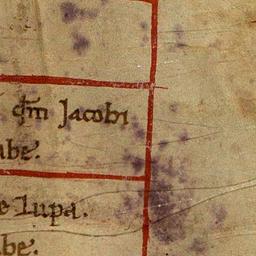 qm Jacobi
abe.
e Lupa.
abe.